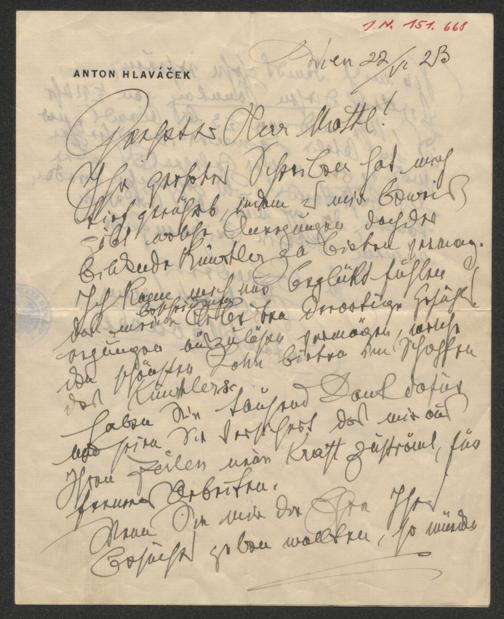 J.N. 151.668
ANTON HLAVÁČEK
Wien 22/VI 23
Geehrter Herr Mottl!
Ihr geehrtes Schreiben hat mich
tief gerührt, indem es mir Beweis
gibt welche Anregungen doch der
bildende Künstler zu bieten vermag.
Ich kann mich nur beglückt fühlen
das meine bescheidenen derartige Gefühls-
regungen auszulösen vermögen, welche
den schönsten Lohn bieten im Schaffen
des Künstlers.
Haben Sie tausend Dank dafür
und seien Sie versichert das mir aus
Ihren Zeilen neue Kraft zuströmt, für
fernere Arbeiten.
Wenn Sie mir die Ehre Ihres
Besuches geben wollten, so würde